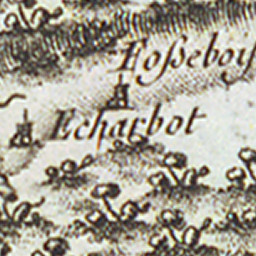 Foſseboiſ
Echarbot